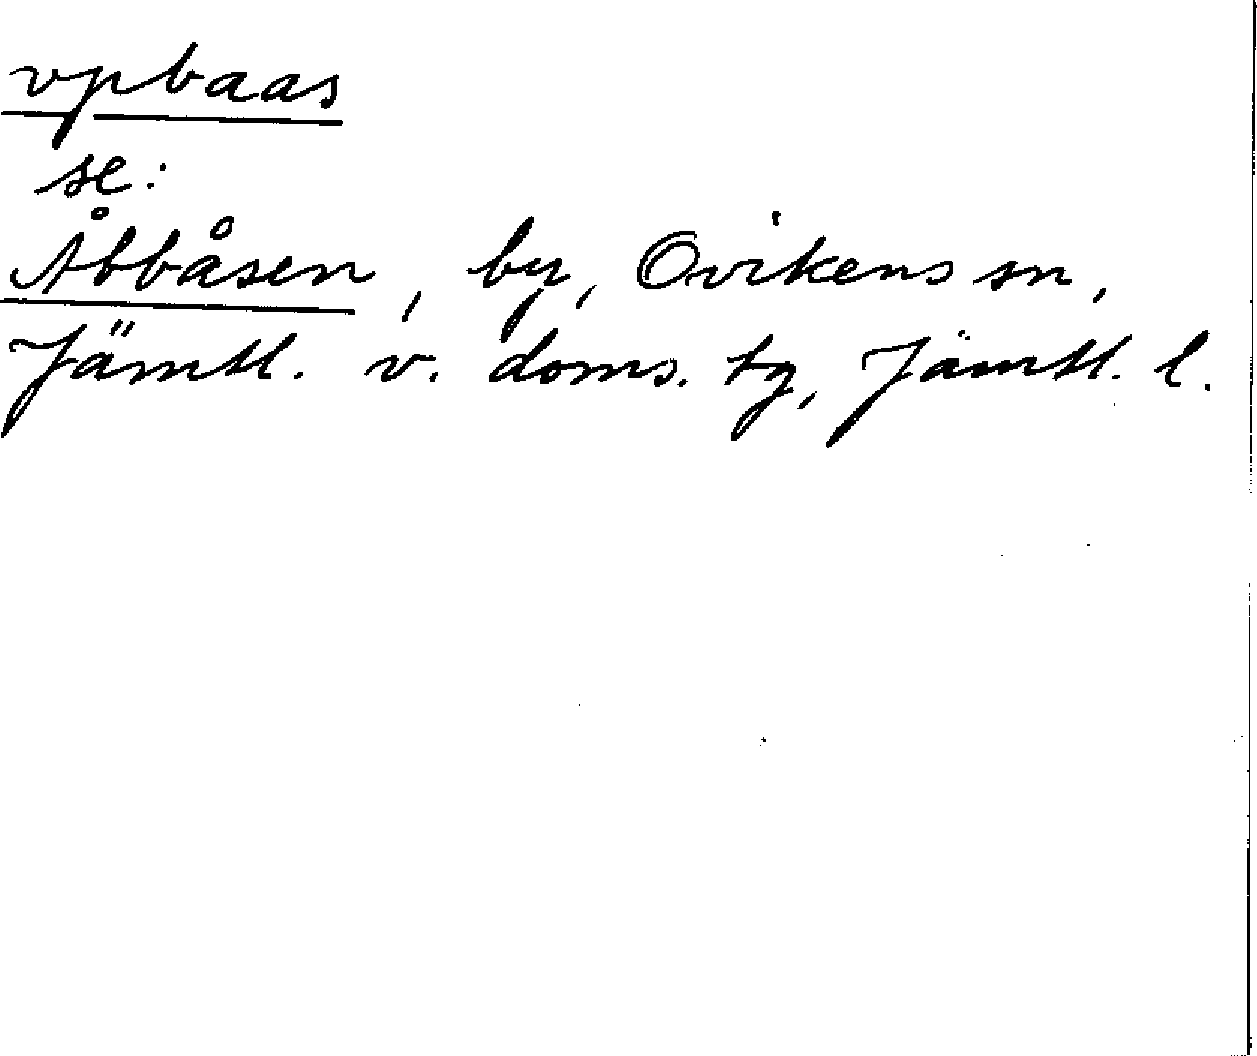 vpbaas
se:
Åbbåsen, by, Ovikens sn,
Jämtl. v. doms. tg, Jämtl. l.